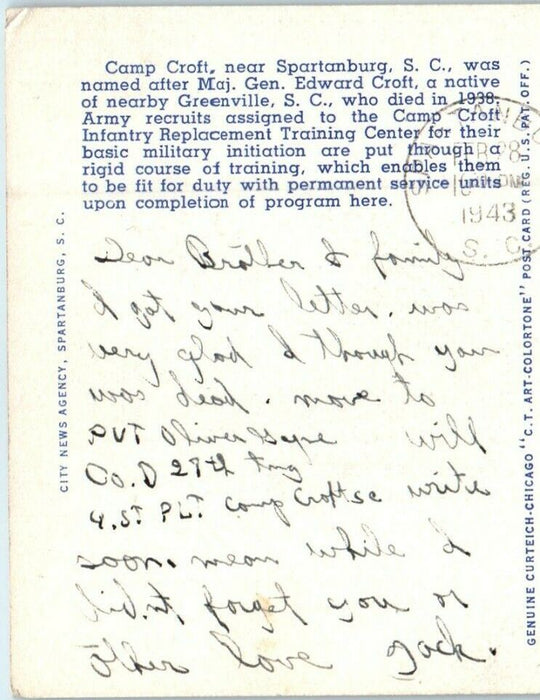 Camp Croft, near Spartanburg, S. C., was
named after Maj. Gen. Edward Croft, a native
of nearby Greenville, S. C., who died in 1938.
Army recruits assigned to the Camp Croft
Infantry Replacement Training Center for their
basic military initiation are put through a
rigid course of training, which enables them
to be fit for duty with permanent service units
upon completion of program here.
FEB 28
1943
S. C.
Dear Brother & family
I got your letter. was
very glad I though your
was dead. move to
PVT Oliver will
Co. D 27th Tng
4. ST PLT Camp Croft sc write
soon. mean while I
did.nt. forget you or
other love Jack.
CITY NEWS AGENCY, SPARTANBURG, S. C.
GENUINE CURTEICH-CHICAGO "C. T. ART-COLORTONE" POST CARD (REG. U. S. PAT. OFF.)